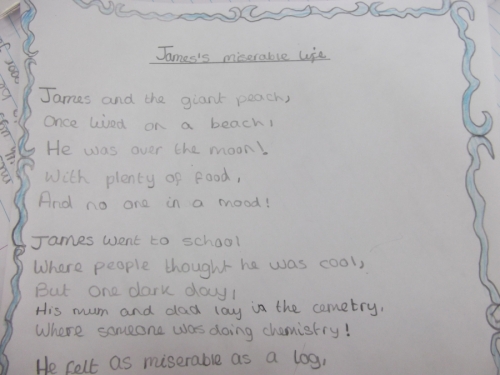 James's miserable life
James and the giant peach,
Once lived on a beach,
He was over the moon!
With plenty of food,
And no one in a mood!
James went to school
Where people thought he was cool,
But one dark day,
His mum and dad lay in the cemetry.
Where someone was doing chemistry!
He felt as miserable as a log,